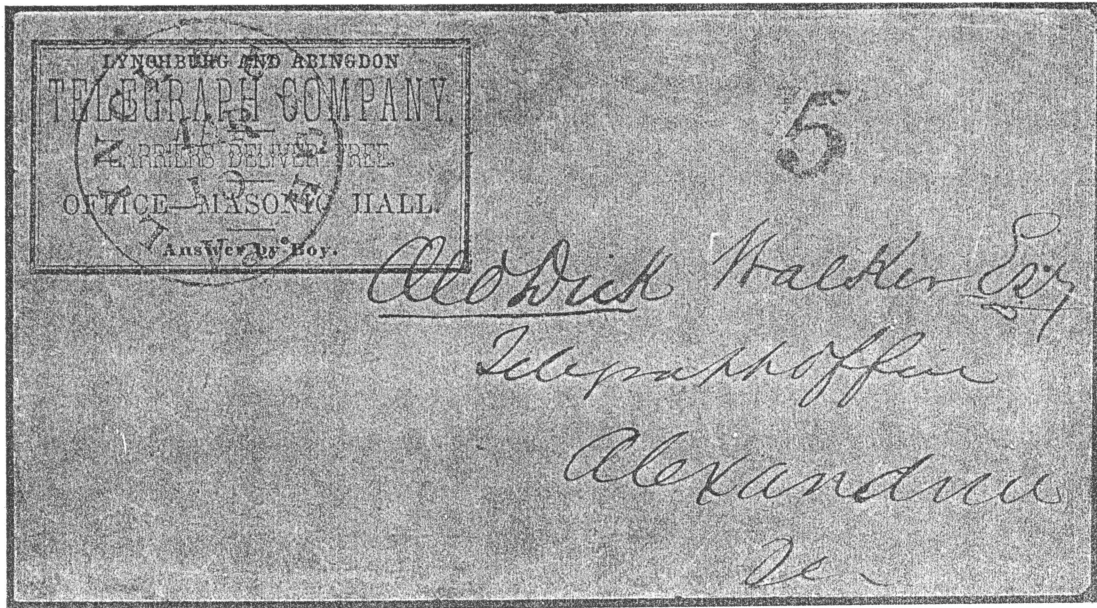 LYNCHBURG AND ABINGDON
TELEGRAPH COMPANY.
CARRIERS DELIVER FREE.
OFFICE—MASONIC HALL.
Answer by Boy.
5
Dick Walker Esq
Telegraph Office
Alexandria
Va